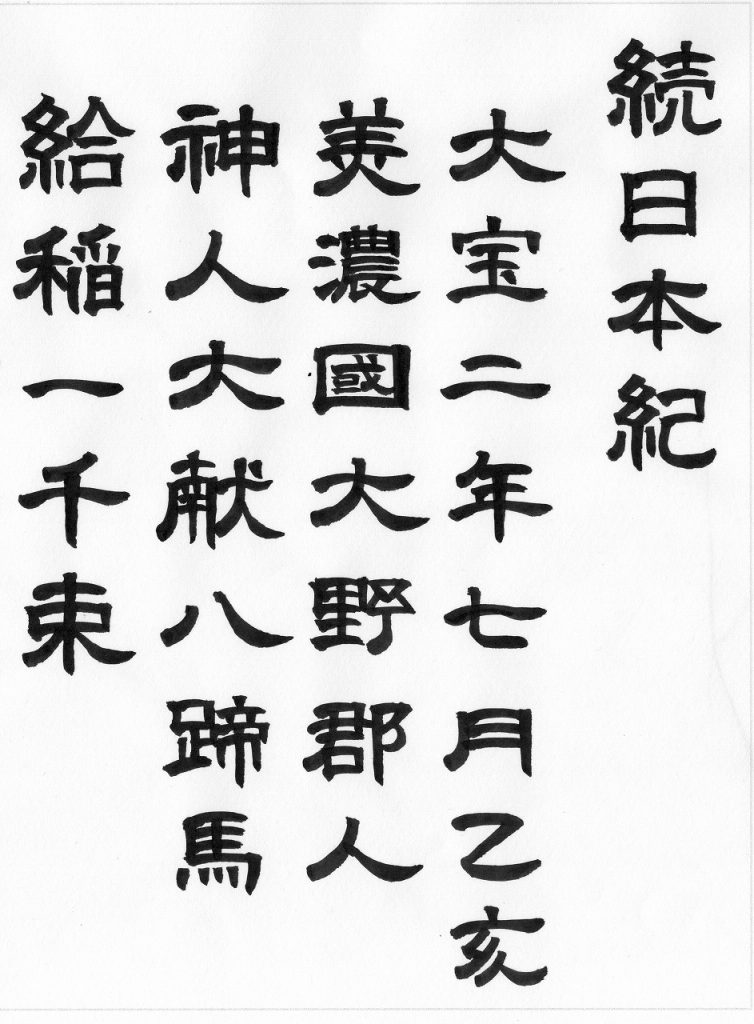 続日本紀
大宝二年七月乙亥
美濃國大野郡人
神人大献八蹄馬
給稲一千束